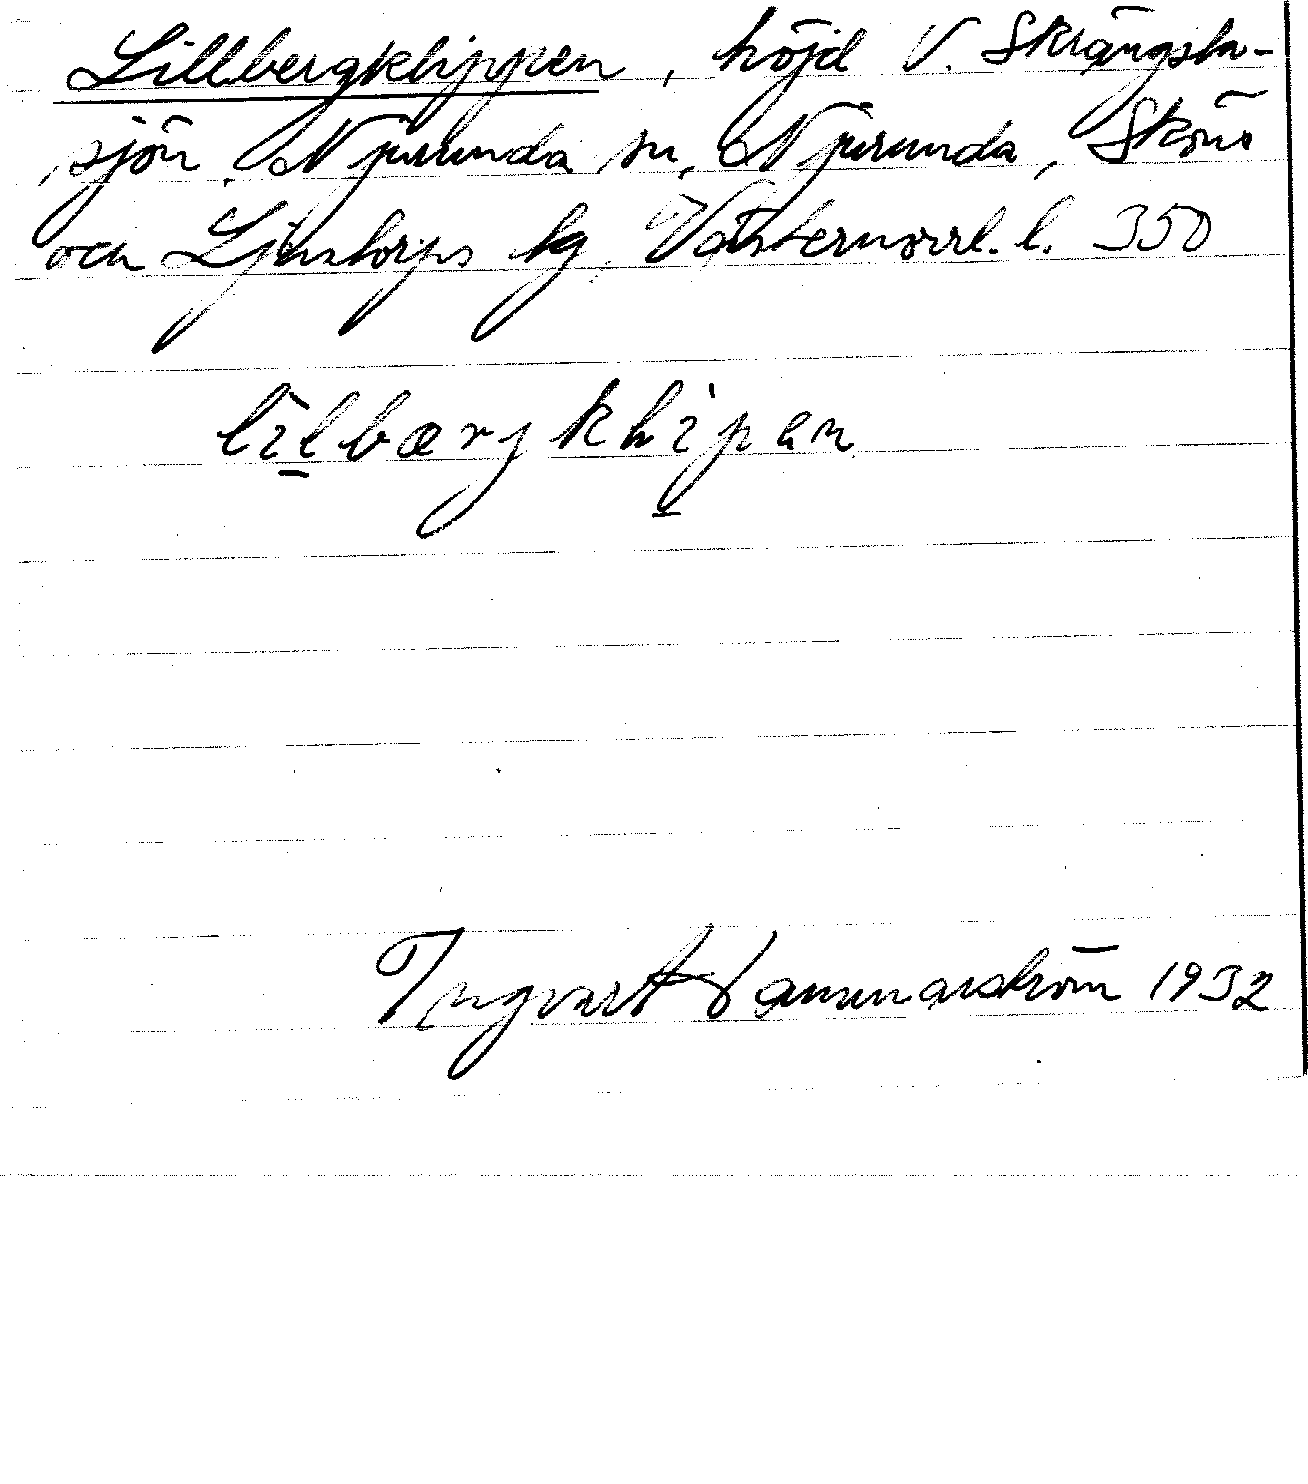 Lillbergklippen, höjd V. Skrängsta-
sjön, Njurunda sn, Njurunda, Sköns
och Ljustorps tg Västernorrl. l. 350
lilbærjklipen
Ingvart Hammarström 1932